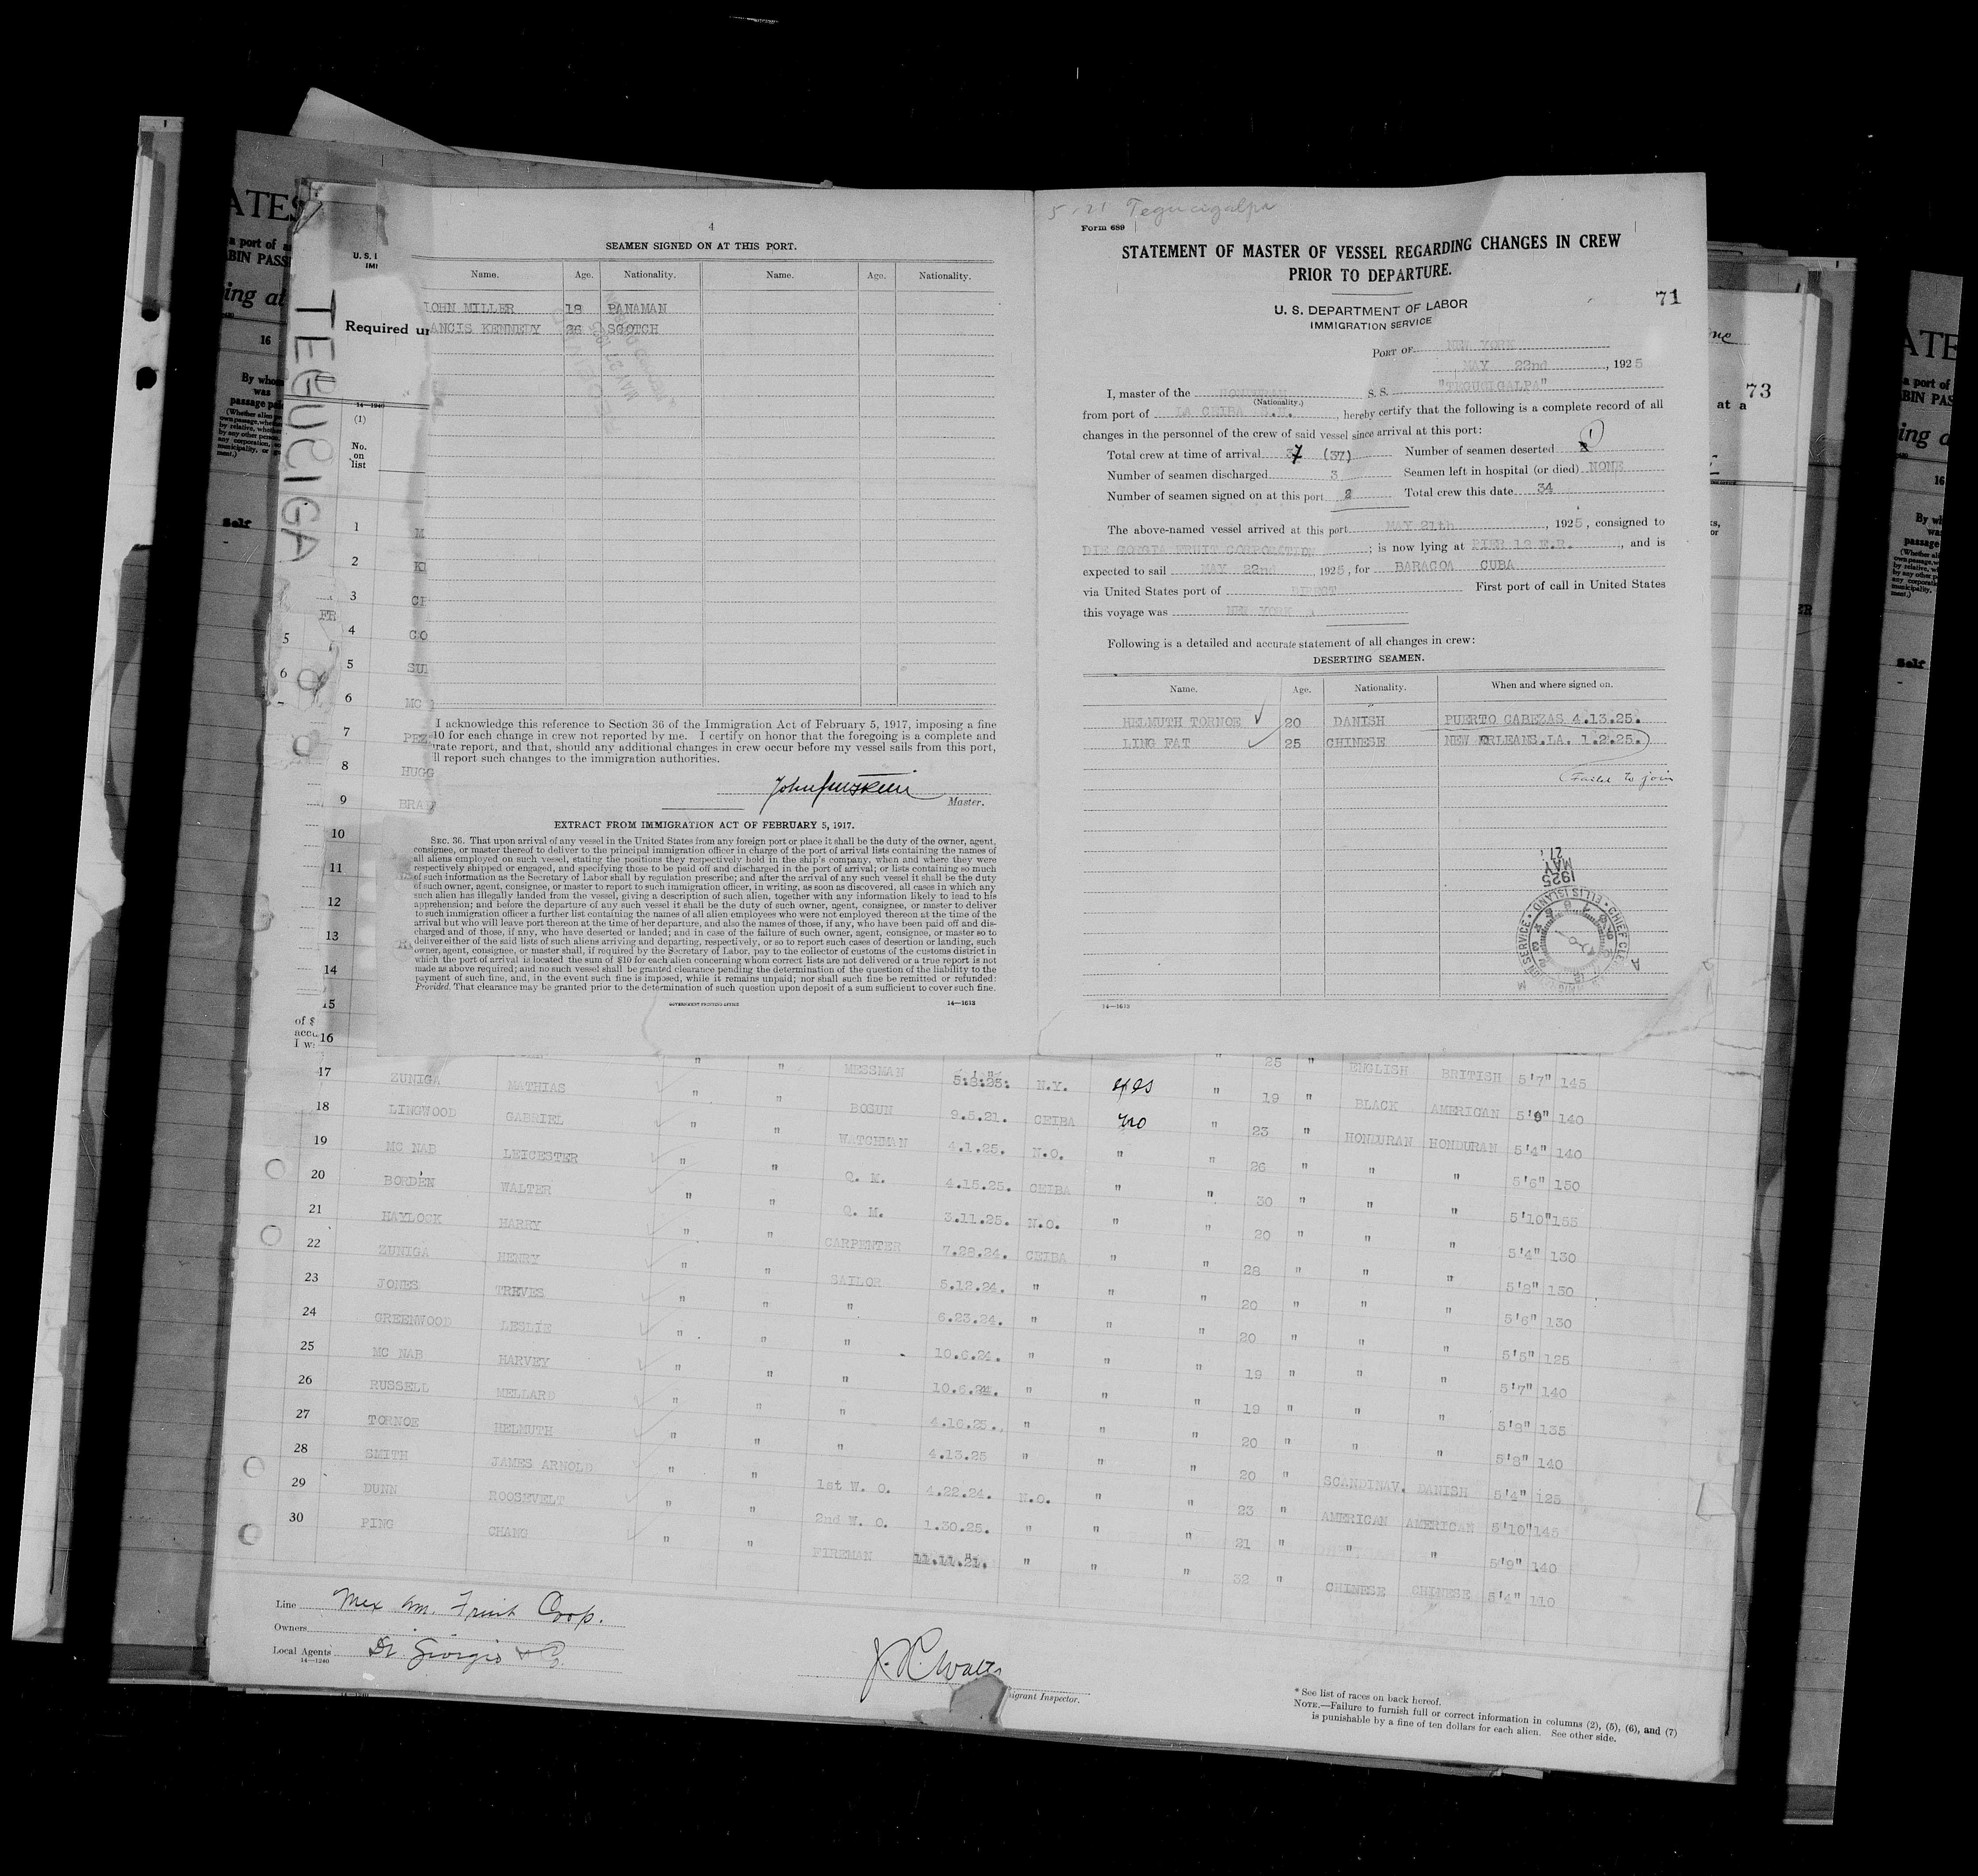 4
SEAMEN SIGNED ON AT THIS PORT.
Name. Age. Nationality. Name. Age. Nationality.
JOHN MILLER 18 PANAMAN
ANCIS KENNEDY 26 SCOTCH
I acknowledge this reference to Section 36 of the Immigration Act of February 5, 1917, imposing a fine
10 for each change in crew not reported by me. I certify on honor that the foregoing is a complete and
rate report, and that, should any additional changes in crew occur before my vessel sails from this port,
ll report such changes to the immigration authorities.
Master.
EXTRACT FROM IMMIGRATION ACT OF FEBRUARY 5, 1917.
SEC. 36. That upon arrival of any vessel in the United States from any foreign port or place it shall be the duty of the owner, agent,
consignee, or master thereof to deliver to the principal immigration officer in charge of the port of arrival lists containing the names of
all aliens employed on such vessel, stating the positions they respectively hold in the ship's company, when and where they were
respectively shipped or engaged, and specifying those to be paid off and discharged in the port of arrival; or lists containing so much
of such information as the Secretary of Labor shall by regulation prescribe; and after the arrival of any such vessel it shall be the duty
of such owner, agent, consignee, or master to report to such immigration officer, in writing, as soon as discovered, all cases in which any
such alien has illegally landed from the vessel, giving a description of such alien, together with any information likely to lead to his
apprehension; and before the departure of any such vessel it shall be the duty of such owner, agent, consignee, or master to deliver
to such immigration officer a further list containing the names of all alien employees who were not employed thereon at the time of the
arrival but who will leave port thereon at the time of her departure, and also the names of those, if any, who have been paid off and dis-
charged and of those, if any, who have deserted or landed; and in case of the failure of such owner, agent, consignee, or master so to
deliver either of the said lists of such aliens arriving and departing, respectively, or so to report such cases of desertion or landing, such
owner, agent, consignee, or master shall, if required by the Secretary of Labor, pay to the collector of customs of the customs district in
which the port of arrival is located the sum of $10 for each alien concerning whom correct lists are not delivered or a true report is not
made as above required; and no such vessel shall be granted clearance pending the determination of the question of the liability to the
payment of such fine, and, in the event such fine is imposed, while it remains unpaid; nor shall such fine be remitted or refunded:
Provided, That clearance may be granted prior to the determination of such question upon deposit of a sum sufficient to cover such fine.
GOVERNMENT PRINTING OFFICE 14—1613
5/21 Tegucigalpa
Form 689
STATEMENT OF MASTER OF VESSEL REGARDING CHANGES IN CREW
PRIOR TO DEPARTURE.
71
U. S. DEPARTMENT OF LABOR
IMMIGRATION SERVICE
PORT OF NEW YORK
MAY 22nd, 1925
I, master of the HONDURAN S. S. "TEGUCIGALPA"
(Nationality.)
from port of LA CEIBA S.H., hereby certify that the following is a complete record of all
changes in the personnel of the crew of said vessel since arrival at this port:
Total crew at time of arrival 37 (37) Number of seamen deserted 1
Number of seamen discharged 3 Seamen left in hospital (or died) NONE
Number of seamen signed on at this port 2 Total crew this date 34
The above-named vessel arrived at this port MAY 21th, 1925, consigned to
DIE GORGIA FRUIT CORPORATION; is now lying at PIER 12 E.R., and is
expected to sail MAY 22nd, 1925, for BARACOA CUBA
via United States port of DIRECT First port of call in United States
this voyage was NEW YORK
Following is a detailed and accurate statement of all changes in crew:
DESERTING SEAMEN.
Name. Age. Nationality. When and where signed on.
HELMUTH TORNOE 20 DANISH PUERTO CABEZAS 4.13.25.
LING FAT 25 CHINESE NEW ORLEANS.LA. 1.2.25.
Failed to join
MAY 27 1925
14—1613
TEGUCIGA
Required un
14—1240
(1)
No.
on
list
1 M
2 KI
3 CH
4 CO
5 SUI
6 MC
7 PEZ
8 HUGG
9 BRA
10
11
12
13
14
15
16
" " MESSMAN " 25 " ENGLISH BRITISH 5'7" 145
17 ZUNIGA MATHIAS " " BOSUN 5.8.25. N.Y. yes " 19 " BLACK AMERICAN 5'9" 140
18 LINGWOOD GABRIEL " " WATCHMAN 9.5.21. CEIBA no " 23 " HONDURAN HONDURAN 5'4" 140
19 MC NAB LEICESTER " " Q. M. 4.1.25. N.O. " " 26 " " " 5'6" 150
20 BORDEN WALTER " " Q. M. 4.15.25. CEIBA " " 30 " " " 5'10" 155
21 HAYLOCK HARRY " " CARPENTER 3.11.25. N.O. " " 20 " " " 5'4" 130
22 ZUNIGA HENRY " " SAILOR 7.28.24. CEIBA " " 28 " " " 5'8" 150
23 JONES TREVES " " " 5.12.24. " " " 20 " " " 5'6" 130
24 GREENWOOD LESLIE " " " 6.23.24. " " " 20 " " " 5'5" 125
25 MC NAB HARVEY " " " 10.6.24. " " " 19 " " " 5'7" 140
26 RUSSELL MELLARD " " " 10.6.24. " " " 19 " " " 5'8" 135
27 TORNOE HELMUTH " " " 4.16.25. " " " 20 " " " 5'8" 140
28 SMITH JAMES ARNOLD " " 1st W. O. 4.13.25 " " " 20 " SCANDINAV. DANISH 5'4" 125
29 DUNN ROOSEVELT " " 2nd W. O. 4.22.24. N.O. " " 23 " AMERICAN AMERICAN 5'10" 145
30 PING CHANG " " FIREMAN 1.30.25. " " " 21 " " " 5'9" 140
11.11.21. " " " 32 " CHINESE CHINESE 5'4" 110
Line Mex Am. Fruit Corp.
Owners
Local Agents Di Giorgio & Co.
14—1240
J. R. Watts
igrant Inspector.
* See list of races on back hereof.
NOTE.—Failure to furnish full or correct information in columns (2), (5), (6), and (7)
is punishable by a fine of ten dollars for each alien. See other side.
73
at a
ATES
a port of
BIN PASS
ing at
16
By whom
was
passage paid
Self